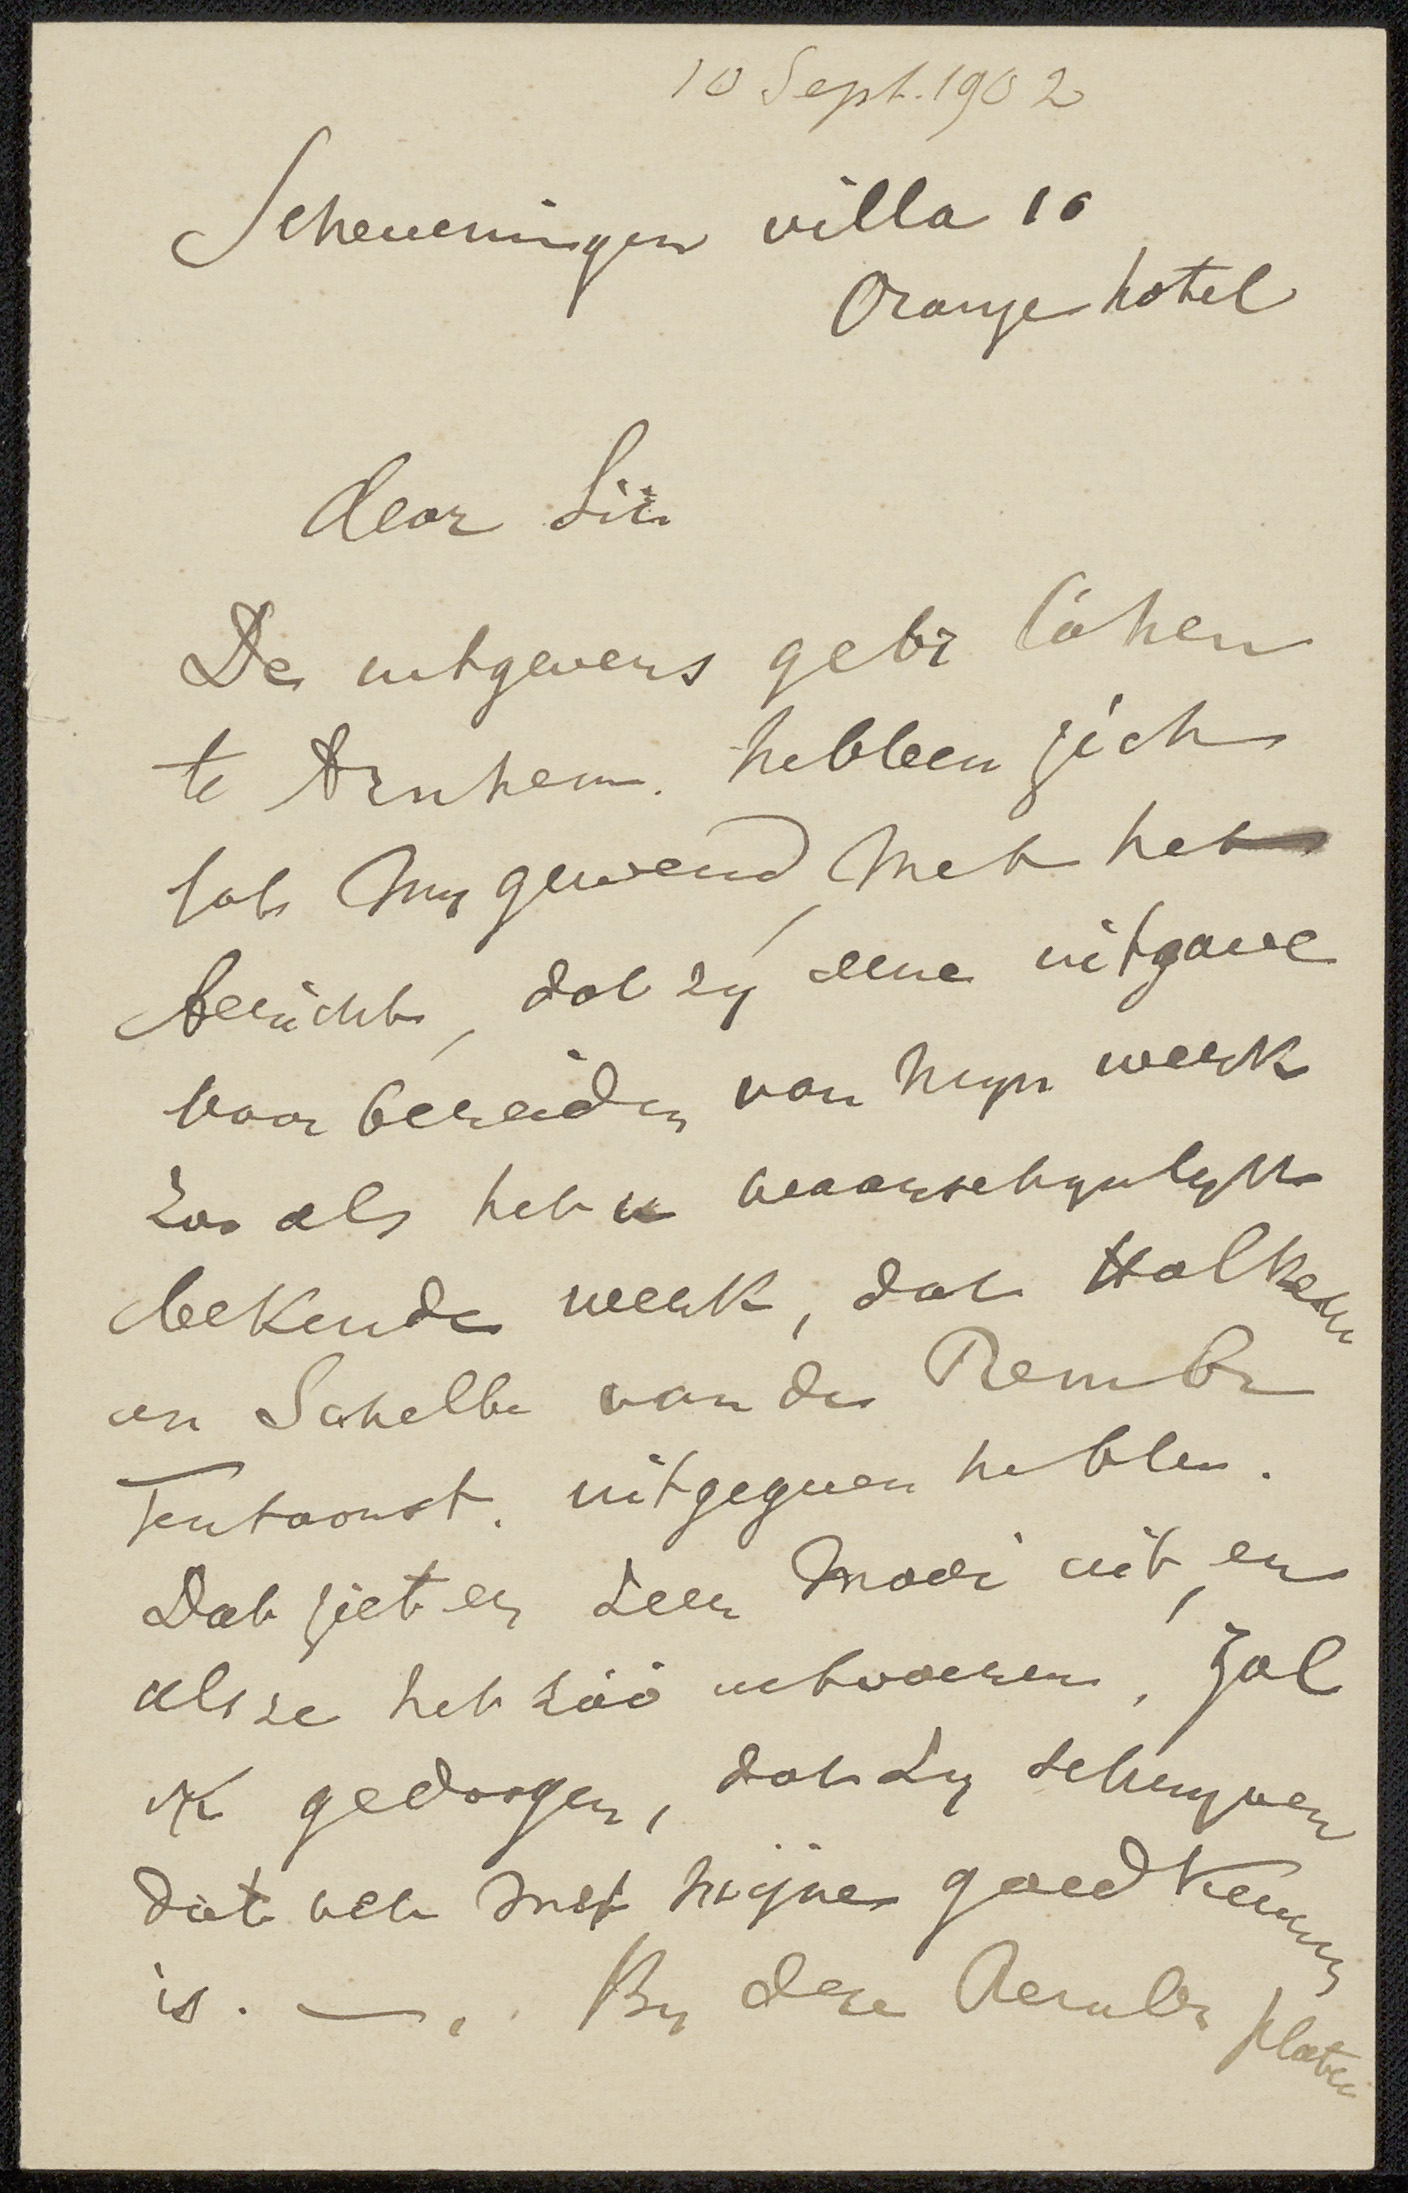 10 Sept. 1902
Scheveningen villa 10
Oranje hotel
dear Sir
De uitgevers gebr Cohen
te Arnhem. hebben zich
tot my gewend, met het
bericht, dat zy eene uitgave
voorbereiden van myn werk
zoo als het u waarschynlyk
bekende werk, dat Holkem
en Schelte van de Rembr
Tentoonst. uitgegeven hebben.
Dat ziet er zeer mooi uit, en
als ze het zóó uitvoeren, zal
ik gedoogen, dat zy schryven
dat het met mijne goedkeuring
is. —. By deze Rembr platen